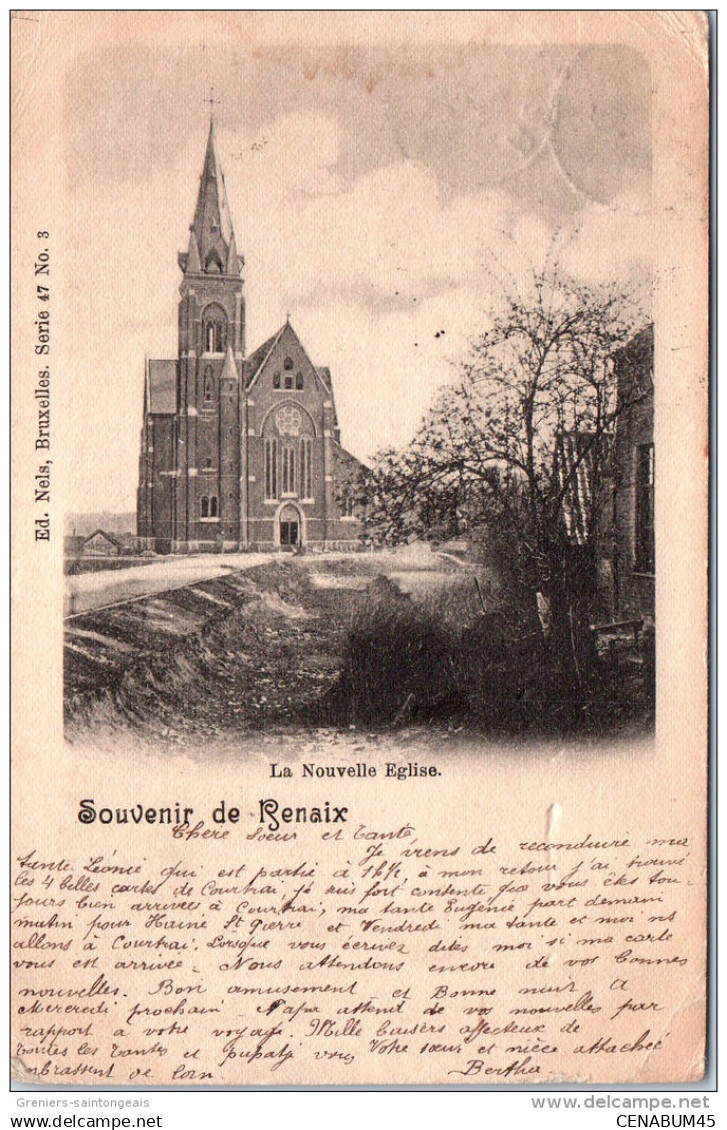 Ed. Nels, Bruxelles. Serie 47 No. 3
La Nouvelle Eglise.
Souvenir de Renaix
Chère Sœur et Tante
Je viens de reconduire ma
tante Léonie qui est partie à 1h½, à mon retour j'ai trouvé
les 4 belles cartes de Courtrai, je suis fort contente que vous êtes tou-
jours bien arrivées à Courtrai, ma tante Eugénie part demain
matin pour Haine St Pierre et Vendredi ma tante et moi ns
allons à Courtrai. Lorsque vous écrivez dites moi si ma carte
vous est arrivée. Nous attendons encore de vos bonnes
nouvelles. Bon amusement et Bonne nuit A
Mercredi prochain attend de vos nouvelles par
rapport à votre voyage. Mille baisers affecteux de
toutes les tantes et vous Votre sœur et nièce attachée
embrassent de loin. Bertha.
Greniers-saintongeais
www.delcampe.net/items?catLists[]=CENABUM45